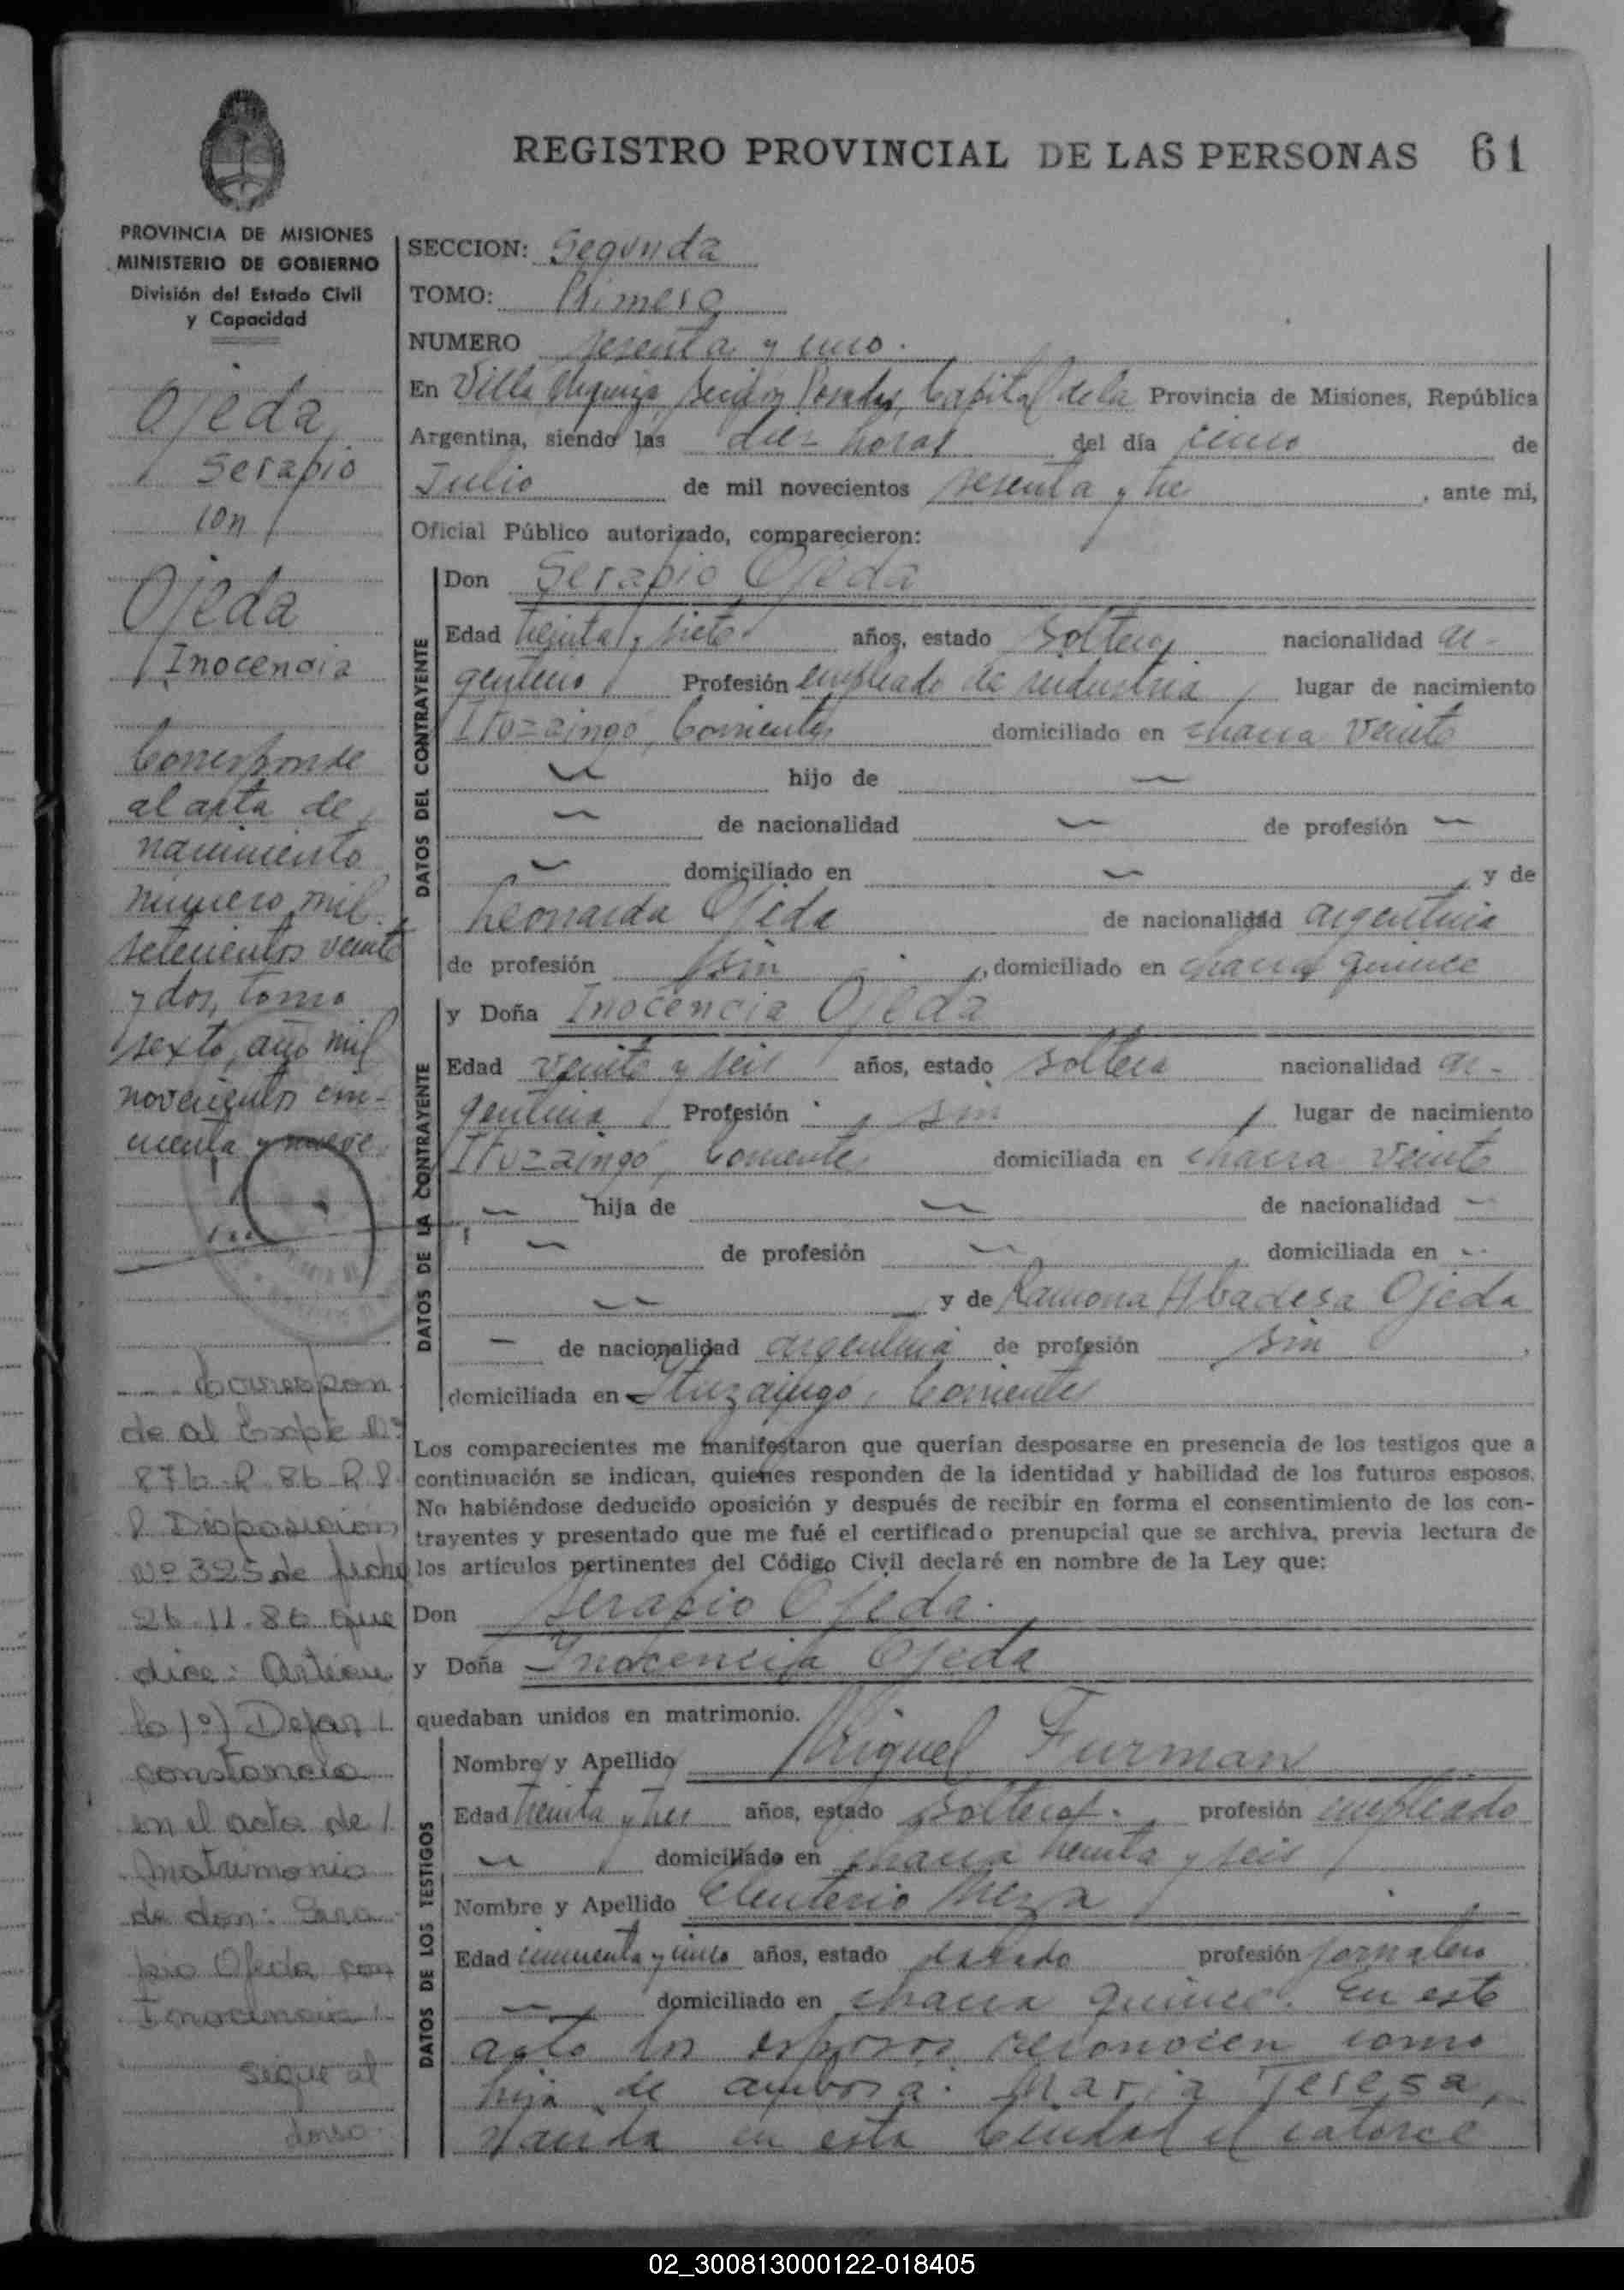 REGISTRO PROVINCIAL DE LAS PERSONAS 61
PROVINCIA DE MISIONES
MINISTERIO DE GOBIERNO
División del Estado Civil
y Capacidad
Ojeda
Serapio
con
Ojeda
Inocencia
Corresponde
al acta de
nacimiento
número mil
setecientos veinte
y dos, tomo
sexto, año mil
novecientos cin-
cuenta y nueve.
Correspon
de al Expte Nº
876-R-86 R.P.
P. Disposición
Nº 325 de fecha
26.11.86 que
dice: Artícu
lo 1º) Dejar
constancia
en el acta de
Matrimonio
de don: Sera
pio Ojeda con
Inocencia
sigue al
dorso.
SECCION: Segunda
TOMO: Primero
NUMERO sesenta y uno.
En Villa Urquiza Sección Posadas, Capital de la Provincia de Misiones, República
Argentina, siendo las diez horas del día cinco de
Julio de mil novecientos sesenta y tres, ante mi,
Oficial Público autorizado, comparecieron:
DATOS DEL CONTRAYENTE
Don Serapio Ojeda
Edad treinta y siete años, estado soltero nacionalidad ar-
gentino Profesión empleado de industria, lugar de nacimiento
Ituzaingó, Corrientes domiciliado en chacra veinte
— hijo de —
— de nacionalidad — de profesión —
— domiciliado en —, y de
Leonarda Ojeda de nacionalidad argentina
de profesión sin, domiciliado en chacra quince
DATOS DE LA CONTRAYENTE
y Doña Inocencia Ojeda
Edad veinte y seis años, estado soltera nacionalidad ar-
gentina Profesión sin, lugar de nacimiento
Ituzaingó, Corrientes domiciliada en chacra veinte
— hija de — de nacionalidad —
— de profesión — domiciliada en —
— y de Ramona Abadesa Ojeda
— de nacionalidad argentina de profesión sin,
domiciliada en Ituzaingó, Corrientes
Los comparecientes me manifestaron que querían desposarse en presencia de los testigos que a
continuación se indican, quienes responden de la identidad y habilidad de los futuros esposos.
No habiéndose deducido oposición y después de recibir en forma el consentimiento de los con-
trayentes y presentado que me fué el certificado prenupcial que se archiva, previa lectura de
los artículos pertinentes del Código Civil declaré en nombre de la Ley que:
Don Serapio Ojeda.
y Doña Inocencia Ojeda
quedaban unidos en matrimonio.
DATOS DE LOS TESTIGOS
Nombre y Apellido Miguel Furman
Edad treinta y tres años, estado soltero. profesión empleado
— domiciliado en chacra treinta y seis
Nombre y Apellido Eleuterio Meza
Edad cincuenta y cinco años, estado casado profesión jornalero
— domiciliado en chacra quince. En este
acto los esposos reconocen como
hija de ambos a: María Teresa,
nacida en esta Ciudad el catorce
02_300813000122-018405